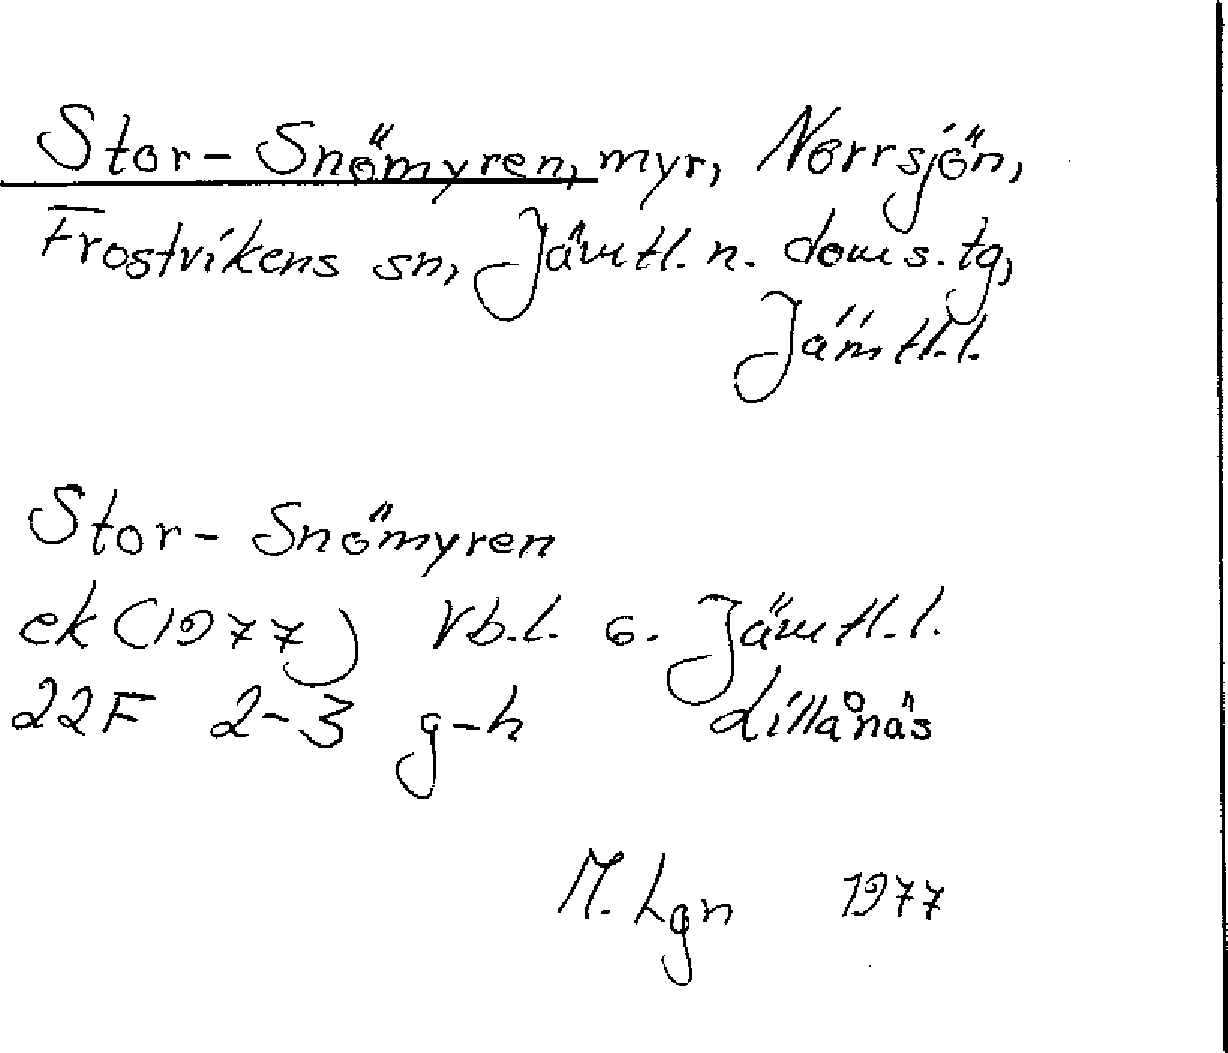 Stor-Snömyren, myr, Norrsjön,
Frostvikens sn, Jämtl. n. doms. tg,
Jämtl.l.
Stor-Snömyren
ek (1977) Vb.l. o. Jämtl.l.
22F 2-3 g-h Lillånäs
M. Lgn 1977